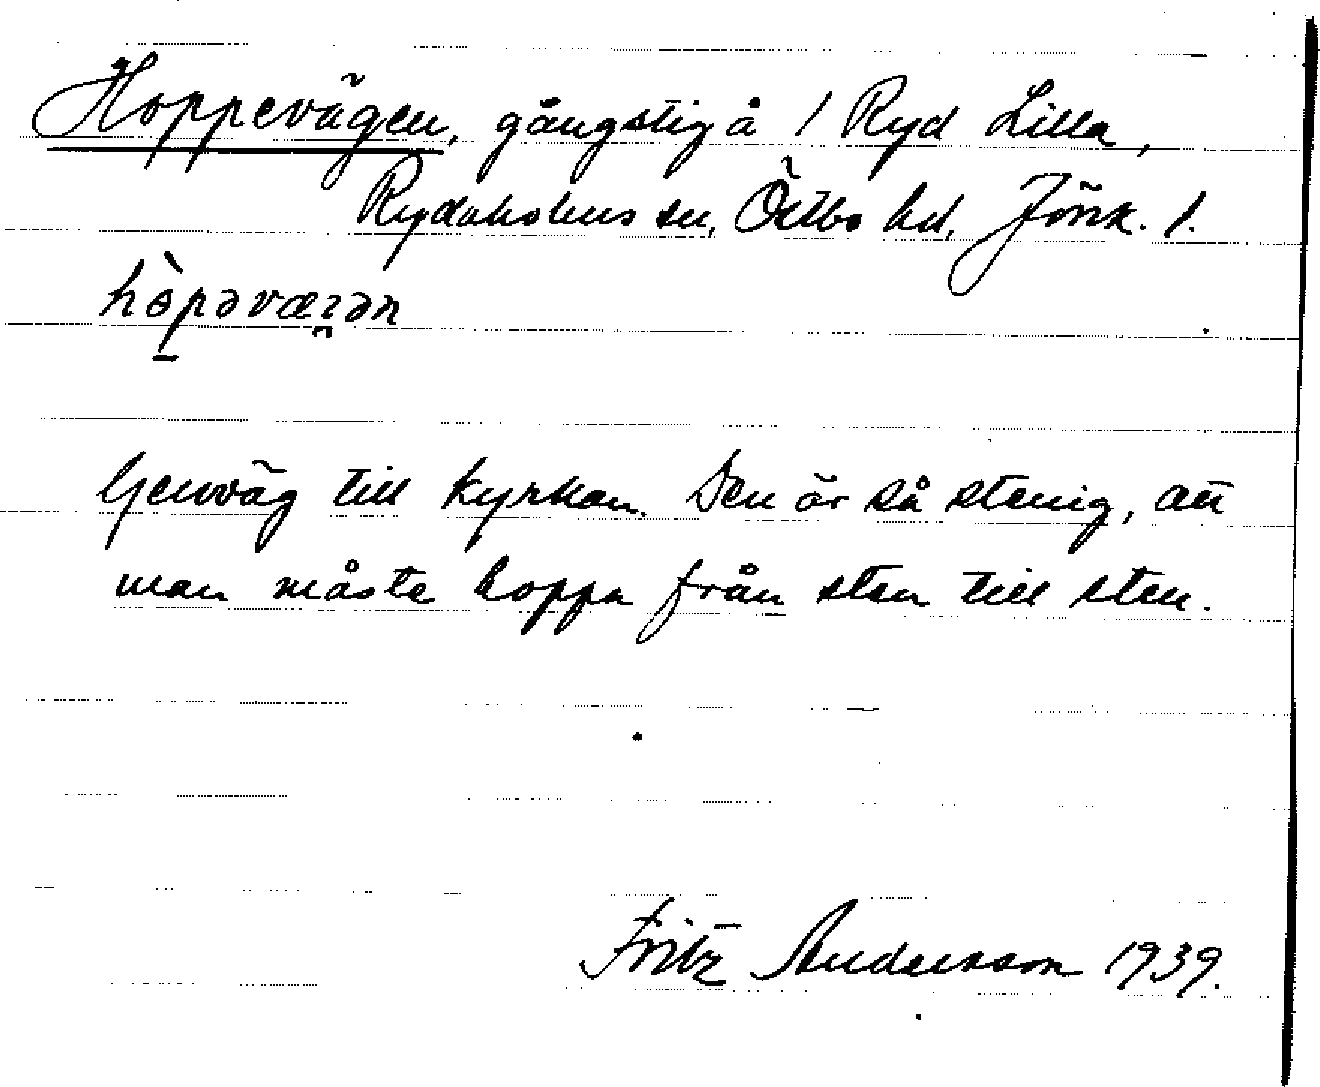 Hoppevägen, gångstig å 1 Ryd Lilla,
Rydaholms sn, Östbo hd, Jönk. l.
hòpəvæꝛən
Genväg till kyrkan. Den är så stenig, att
man måste hoppa från sten till sten.
Fritz Andersson 1939.